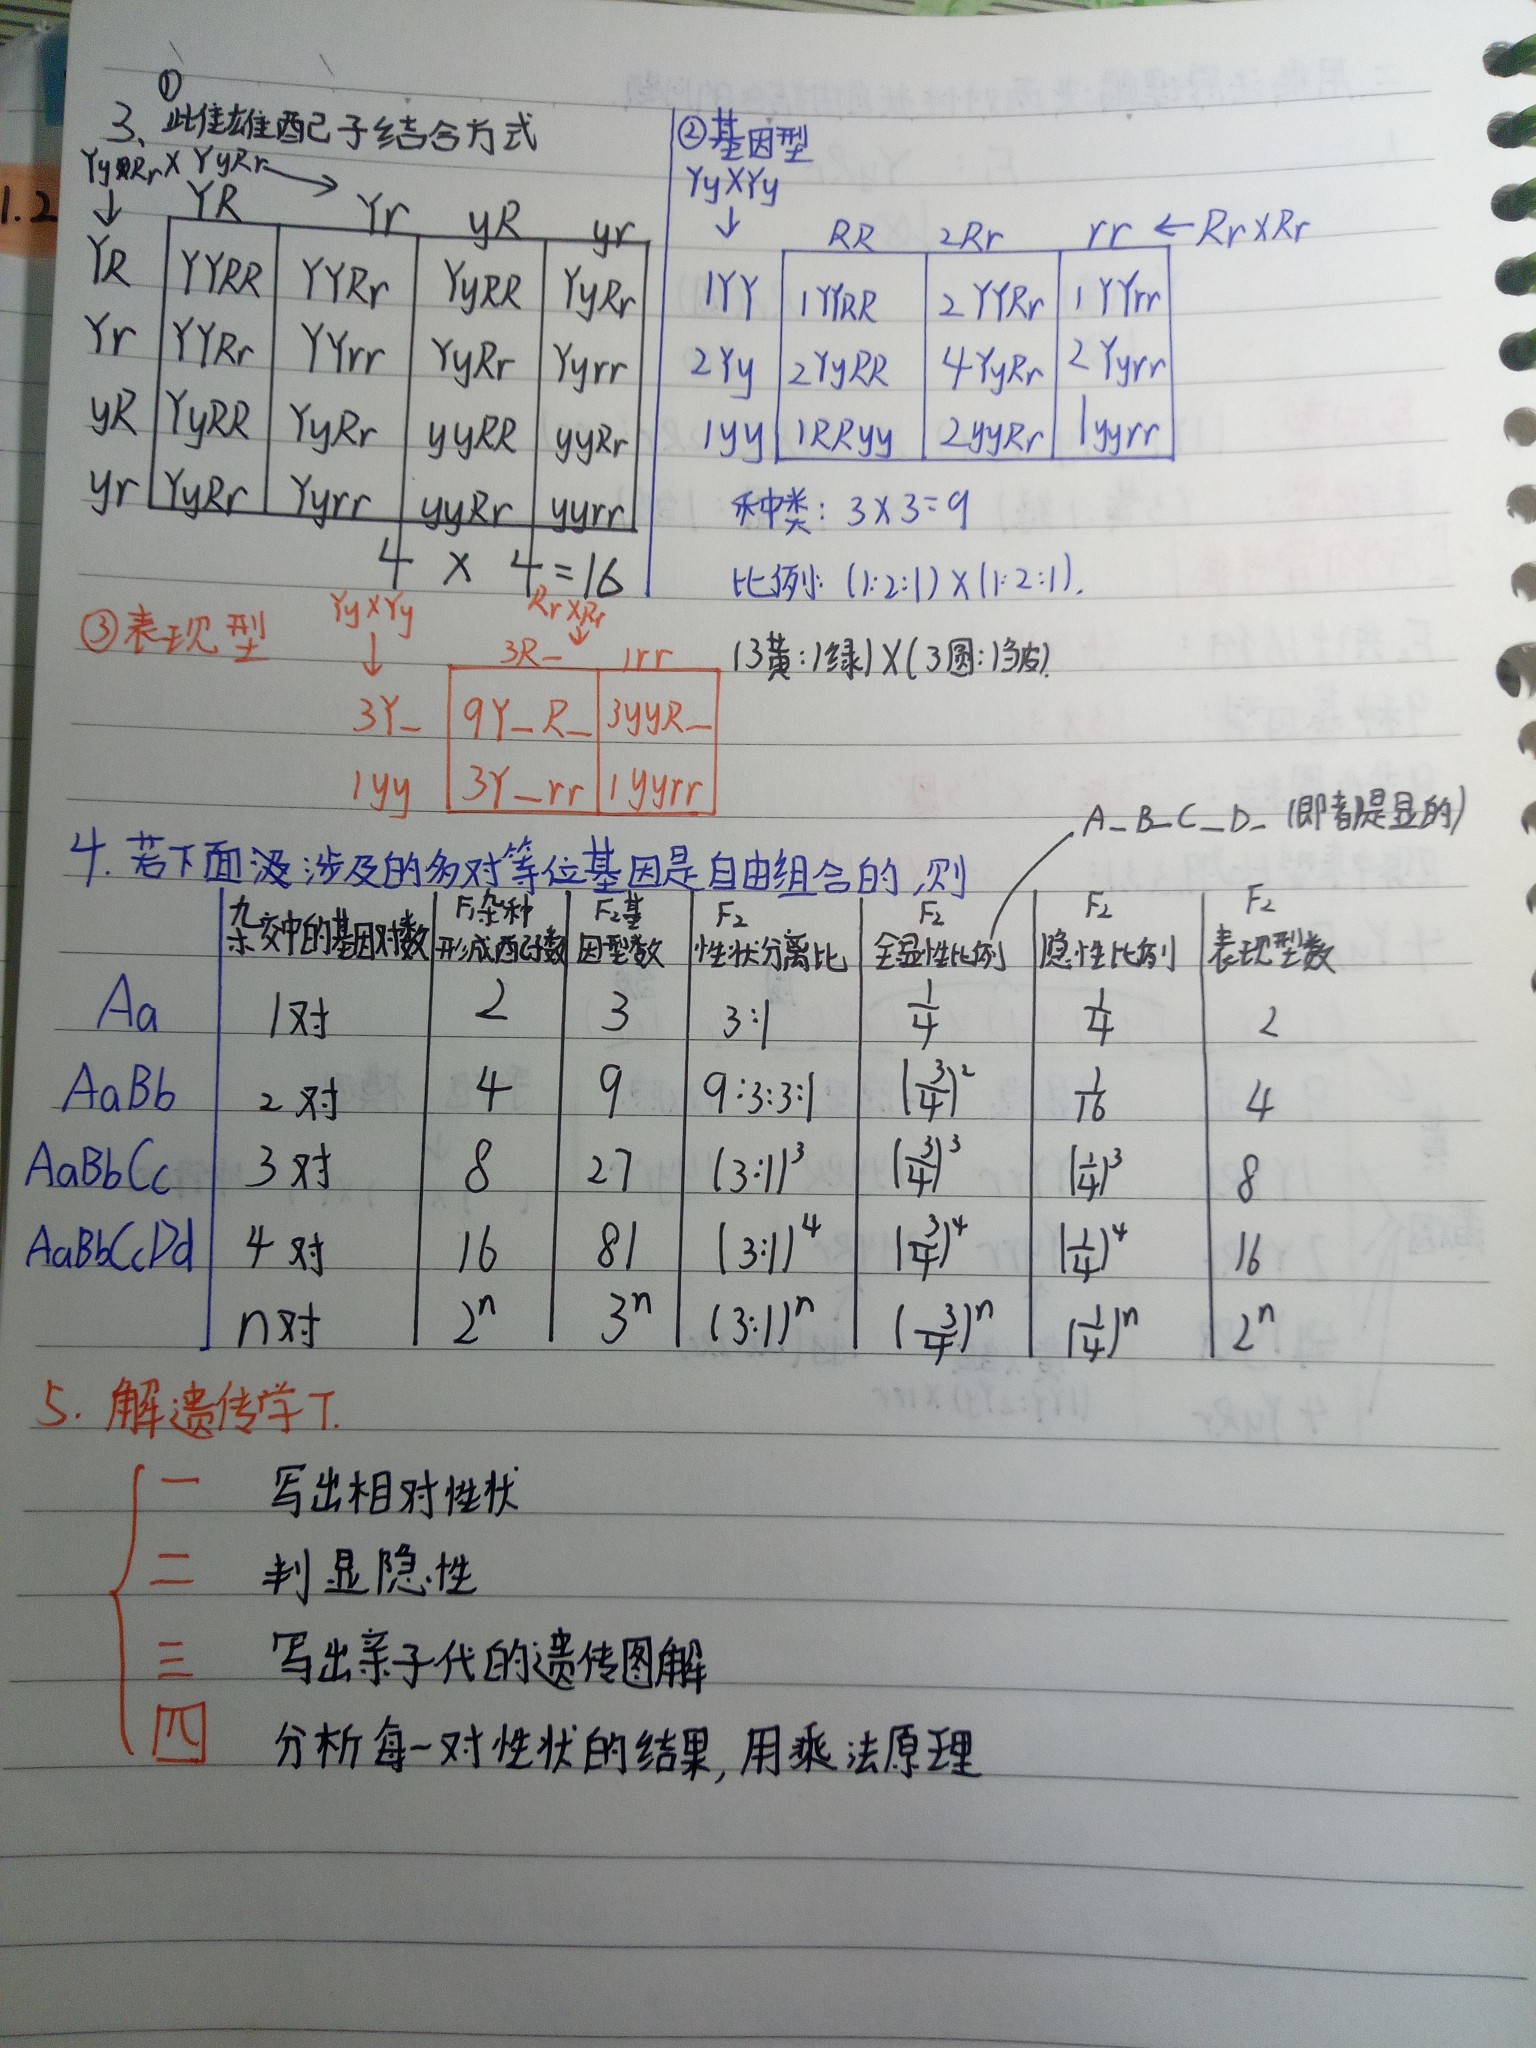 ①
3、此雌雄配子结合方式
YyRr X YyRr
YR Yr yR yr
YR YYRR YYRr YyRR YyRr
Yr YYRr YYrr YyRr Yyrr
yR YyRR YyRr yyRR yyRr
yr YyRr Yyrr yyRr yyrr
4 × 4=16
②基因型
YyXYy
RR 2Rr rr ← RrXRr
1YY 1YYRR 2YYRr 1YYrr
2Yy 2YyRR 4YyRr 2Yyrr
1yy 1RRyy 2yyRr 1yyrr
种类: 3X3=9
比例: (1:2:1)X(1:2:1).
(3黄:1绿)X(3圆:1皱).
③表现型
YyXYy RrXRr
3R_ 1rr
3Y_ 9Y_R_ 3yyR_
1yy 3Y_rr 1yyrr
A_B_C_D_ (即都是显的)
4.若下面 涉及的多对等位基因是自由组合的,则
杂交中的基因对数 F₁杂种形成配子数 F₂基因型数 F₂性状分离比 F₂全显性比例 F₂隐性比例 F₂表现型数
Aa 1对 2 3 3:1 1/4 1/4 2
AaBb 2对 4 9 9:3:3:1 (3/4)² 1/16 4
AaBbCc 3对 8 27 (3:1)³ (3/4)³ (1/4)³ 8
AaBbCcDd 4对 16 81 (3:1)⁴ (3/4)⁴ (1/4)⁴ 16
n对 2ⁿ 3ⁿ (3:1)ⁿ (3/4)ⁿ (1/4)ⁿ 2ⁿ
5. 解遗传学T.
一 写出相对性状
二 判显隐性
三 写出亲子代的遗传图解
四 分析每一对性状的结果,用乘法原理
1.2